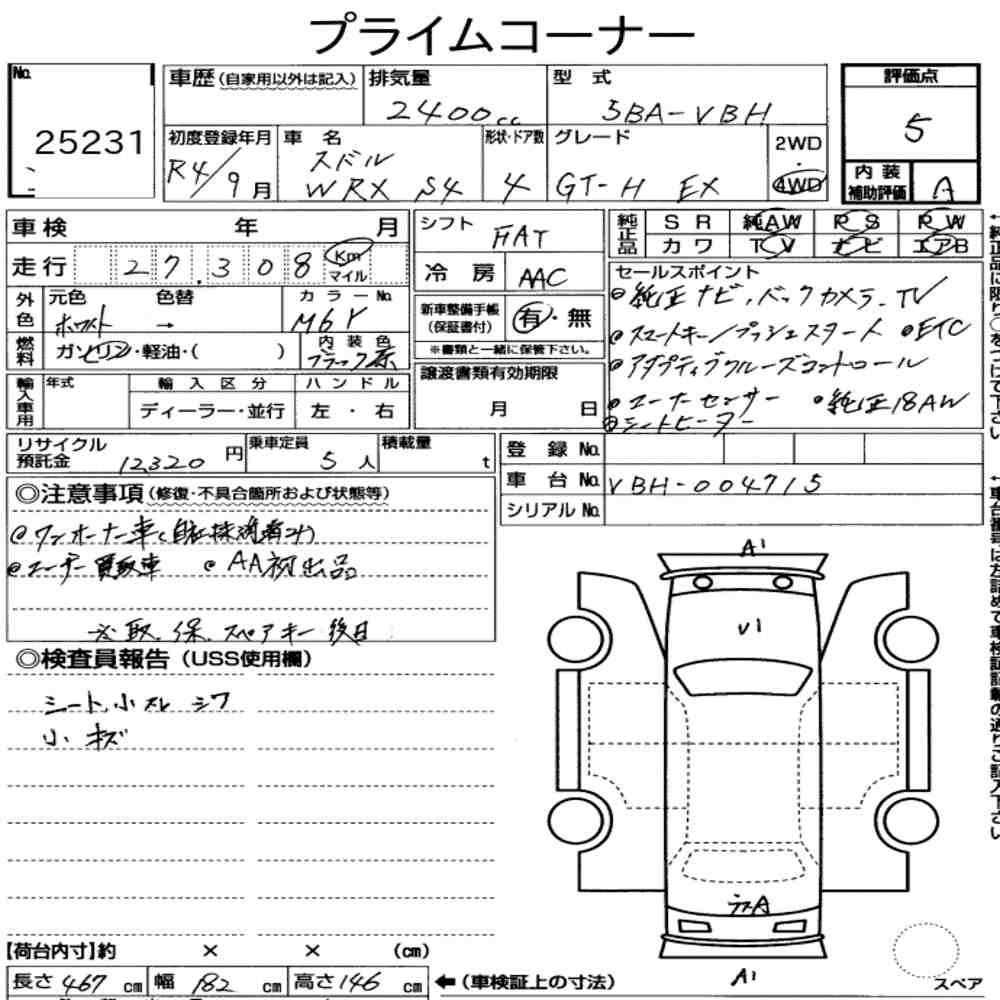 プライムコーナー
No.
25231
車歴(自家用以外は記入)
排気量
2400cc
型 式
5BA-VBH
評価点
5
初度登録年月
R4/9月
車 名
スバル
WRX S4
形状・ドア数
4
グレード
GT-H EX
2WD
・
4WD
内装
補助評価
A
車検 年 月
走行 27,308 Km
マイル
シフト
FAT
冷房
AAC
純正品
SR 純AW PS PW
カワ TV ナビ エアB
外色
元色 色替 カラーNo.
ホワイト → M6Y
燃料
ガソリン・軽油・( )
内装色
ブラック系
新車整備手帳
(保証書付)
有・無
※書類と一緒に保管下さい。
セールスポイント
◎純正ナビ、バックカメラ、TV
◎スマートキー/プッシュスタート ◎ETC
◎アダプティブクルーズコントロール
◎コーナーセンサー ◎純正18AW
◎シートヒーター
輸入車用
年式
輸入区分
ディーラー・並行
ハンドル
左・右
譲渡書類有効期限
月 日
リサイクル
預託金 12,320円
乗車定員
5人
積載量
t
登録No.
車台No. VBH-004715
シリアルNo.
◎注意事項(修復・不具合箇所および状態等)
◎ワンオーナー車
◎ユーザー買取車 ◎AA初出品
取、保、スペアキー後日
◎検査員報告(USS使用欄)
シート小スレ シワ
小キズ
A1
V1
A
A1
スペア
【荷台内寸】約 × × (cm)
長さ467cm 幅182cm 高さ146cm
←(車検証上の寸法)